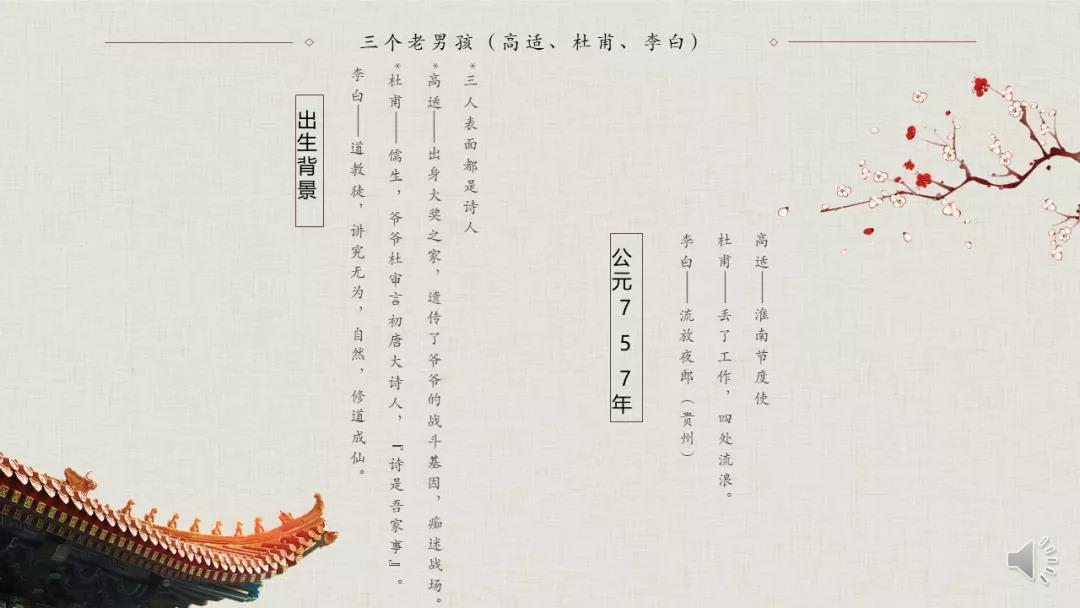 三个老男孩（高适、杜甫、李白）
出生背景
*三人表面都是诗人
*高适——出身大奖之家，遗传了爷爷的战斗基因，痴迷战场。
*杜甫——儒生，爷爷杜审言初唐大诗人，『诗是吾家事』。
李白——道教徒，讲究无为，自然，修道成仙。
公元757年
高适——淮南节度使
杜甫——丢了工作，四处流浪。
李白——流放夜郎（贵州）